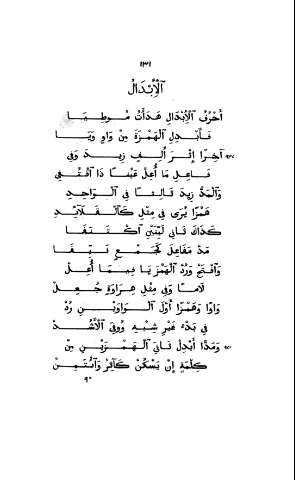 ١٣١
الْإِبْدَالُ
أَحْرُفُ الْإِبْدَالِ هَدَأْتُ مُوطِيَا
فَأَبْدِلِ الْهَمْزَةَ مِنْ وَاوٍ وَيَا
آخِرًا إِثْرَ أَلِفٍ زِيدَ وَفِي
فَاعِلِ مَا أُعِلَّ عَيْنًا ذَا اقْتُفِي
وَالْمَدُّ زِيدَ ثَالِثًا فِي الْوَاحِدِ
هَمْزًا يُرَى فِي مِثْلِ كَالْقَلَائِدِ
كَذَاكَ ثَانِي لَيِّنَيْنِ اكْتَنَفَا
مَدَّ مَفَاعِلَ كَجَمْعِ نَيِّفَا
وَافْتَحْ وَرُدَّ الْهَمْزَ يَا فِيمَا أُعِلّ
لَامًا وَفِي مِثْلِ هِرَاوَةٍ جُعِلْ
وَاوًا وَهَمْزًا أَوَّلَ الْوَاوَيْنِ رُدّ
فِي بَدْءِ غَيْرِ شِبْهِ وُوفِيَ الْأَشُدّ
وَمَدًّا أَبْدِلْ ثَانِيَ الْهَمْزَيْنِ مِنْ
كِلْمَةٍ إِنْ يَسْكُنْ كَآثِرْ وَائْتُمِنْ